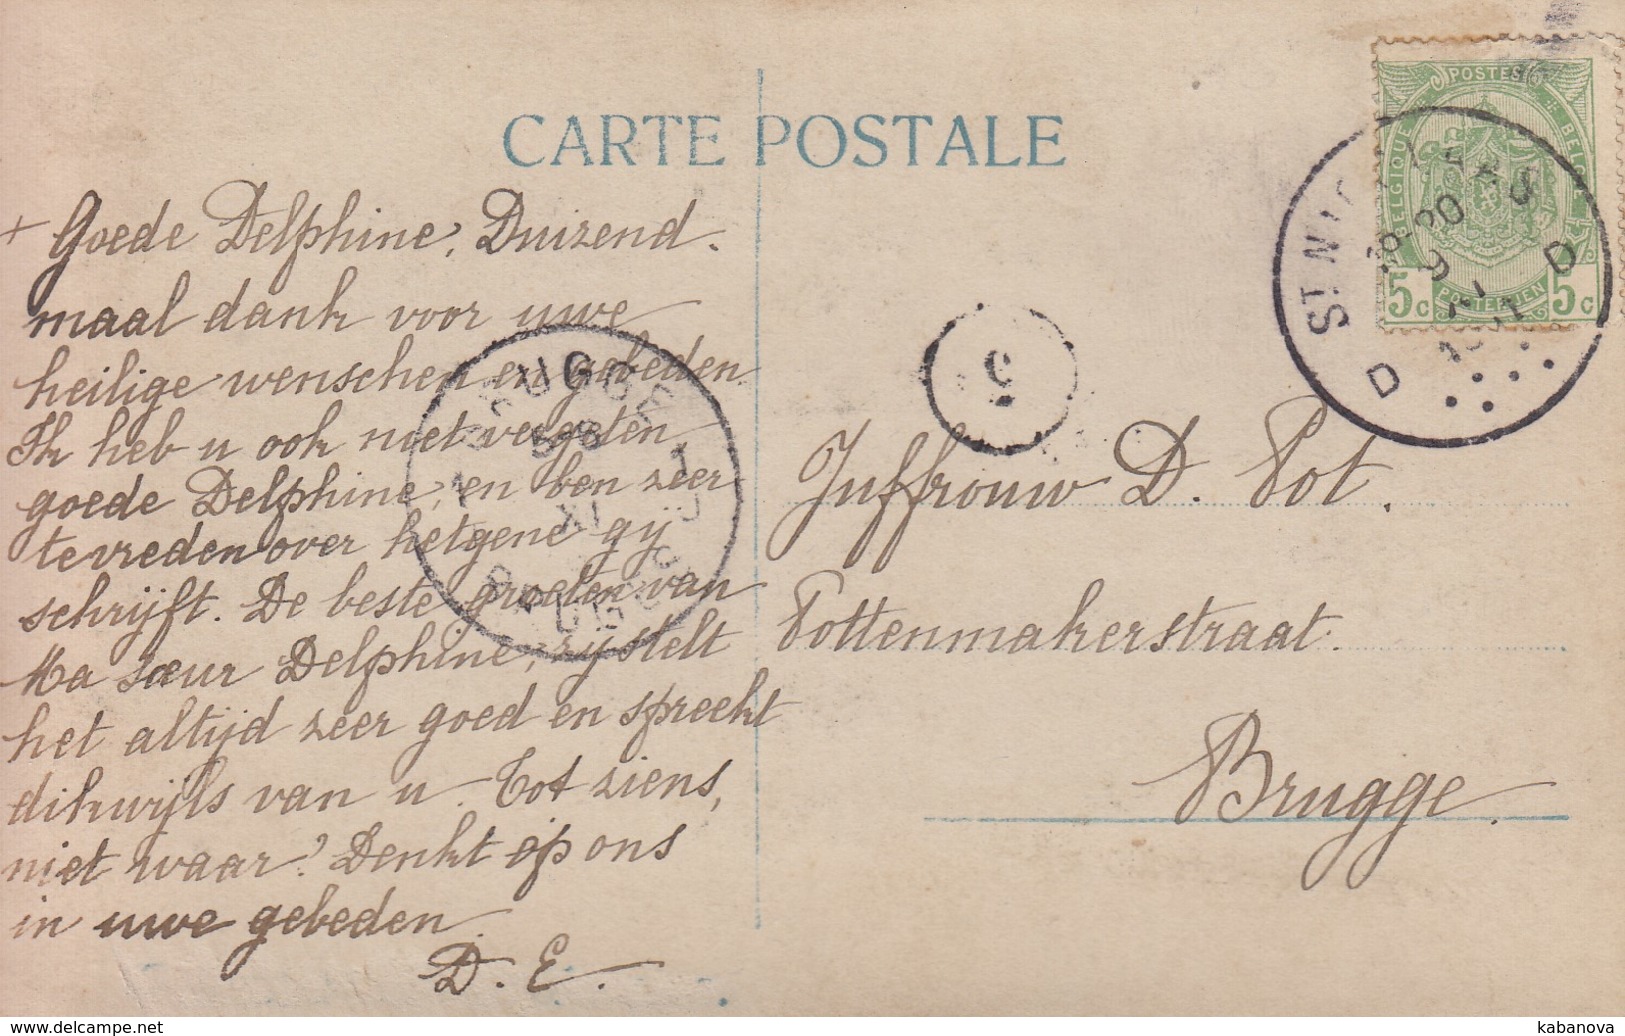 CARTE POSTALE
+ Goede Delphine, Duizend.
maal dank voor uwe
heilige wenschen en gebeden
Ik heb u ook niet vergeten
goede Delphine, en ben zeer
tevreden over hetgene gij
schrijft. De beste groeten van
Ma sœur Delphine, zij stelt
het altijd zeer goed en spreekt
dikwijls van u. Tot ziens,
niet waar? Denkt op ons
in uwe gebeden
D. E.
Juffrouw D. Pot.
Pottenmakerstraat.
Brugge.
POSTES
BELGIQUE
5c POSTERIJEN 5c
ST NIC
D D
BRUGGE
BRUGES
5
kabanova